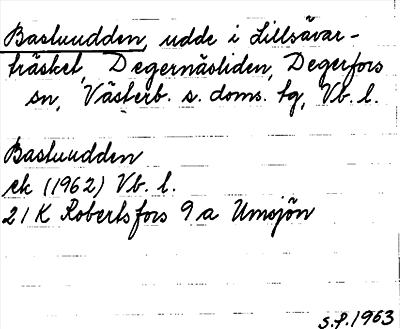 Bastuudden, udde i Lillsävar-
träsket, Degernäsliden, Degerfors
sn, Västerb. s. doms. tg, Vb. l.
Bastuudden
ek (1962) Vb. l.
21 K Robertsfors 9 a Umsjön
S.P. 1963